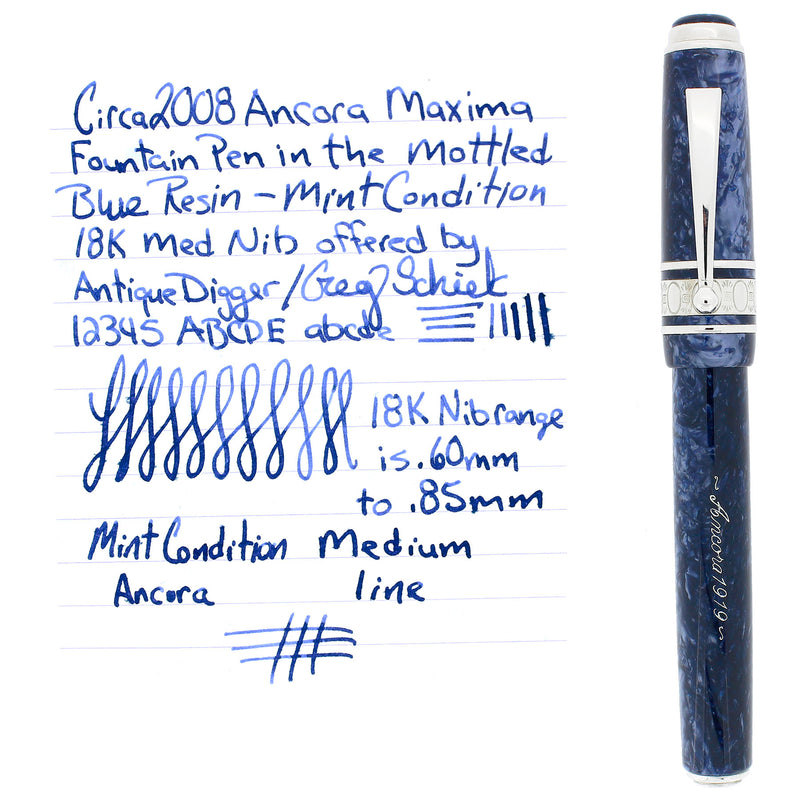 Circa 2008 Ancora Maxima
Fountain Pen in the Mottled
Blue Resin – Mint Condition
18K Med Nib offered by
Antique Digger / Greg Schiek
12345 ABCDE abcde
18K Nib range
is .60mm
to .85mm
Mint Condition Medium
Ancora line
~ Ancora 1919 ~